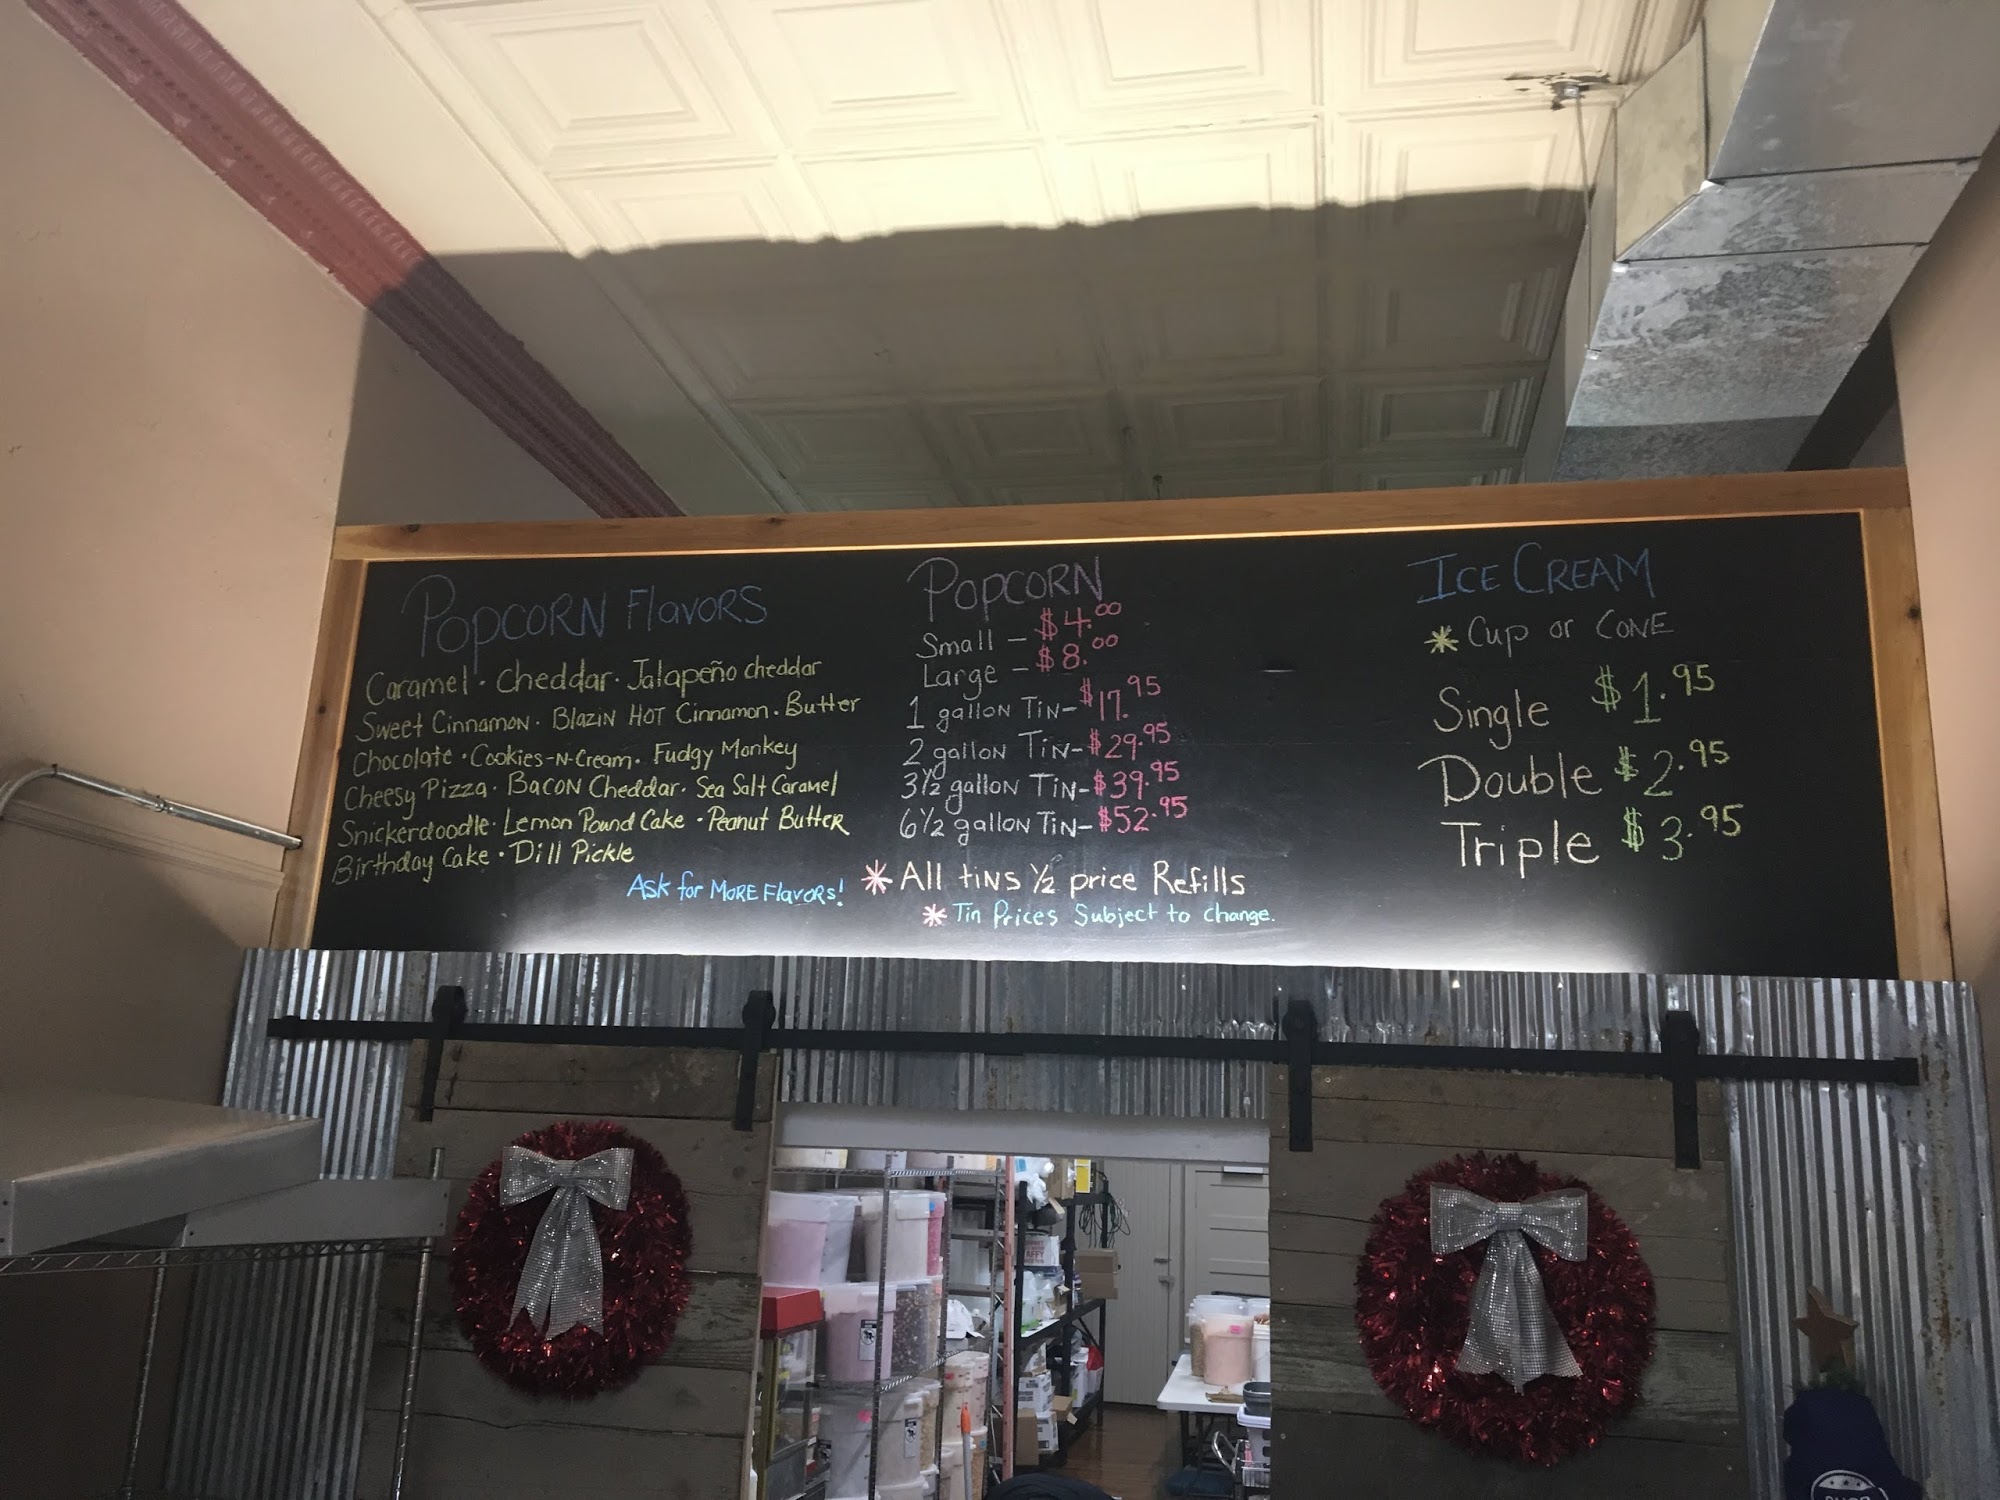 Popcorn Flavors
Caramel · Cheddar · Jalapeño cheddar
Sweet Cinnamon · Blazin Hot Cinnamon · Butter
Chocolate · Cookies-N-Cream · Fudgy Monkey
Cheesy Pizza · Bacon Cheddar · Sea Salt Caramel
Snickerdoodle · Lemon Pound Cake · Peanut Butter
Birthday Cake · Dill Pickle
Ask for More Flavors!
Popcorn
Small - $4.00
Large - $8.00
1 gallon Tin - $17.95
2 gallon Tin - $29.95
3½ gallon Tin - $39.95
6½ gallon Tin - $52.95
* All tins ½ price Refills
* Tin Prices Subject to change.
Ice Cream
* Cup or Cone
Single $1.95
Double $2.95
Triple $3.95